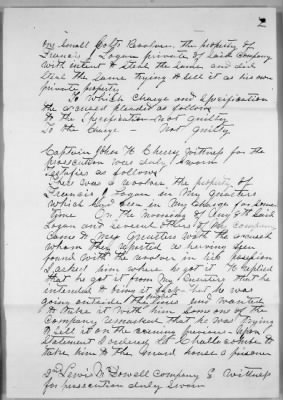 one Small Colts Revolver. the property of
Francis Logan private of said Company
with intent to steal the same and did
Steal the same trying to sell it as his own
private property
To Which Charge and Specification
the accused pleaded as follows
to the Specification Not Guilty
To the Charge — Not Guilty
Captain John H Cherry Witness for the
prosecution was duly Sworn
Testifies as follows
There was a revolver the property of
Francis Logan in My Quarters
which had been in My Charge for Some
time On the Morning of Aug 9th Said
Logan and several others of the Company
Came to My Quarters with the accused
whom they reported as having been
found with the revolver in his possession
I asked him where he got it He replied
that he got it from My Quarters that he
intended to bring it back but he was
going outside the lines and wanted
to take it with him Some one of the
Company remarked that he was trying
to sell it on the evening previous Upon
statement I ordered Challacombe to
take him to the Guard house a prisoner
Lewis Dowell Company E. Witness
for prosecution duly Sworn